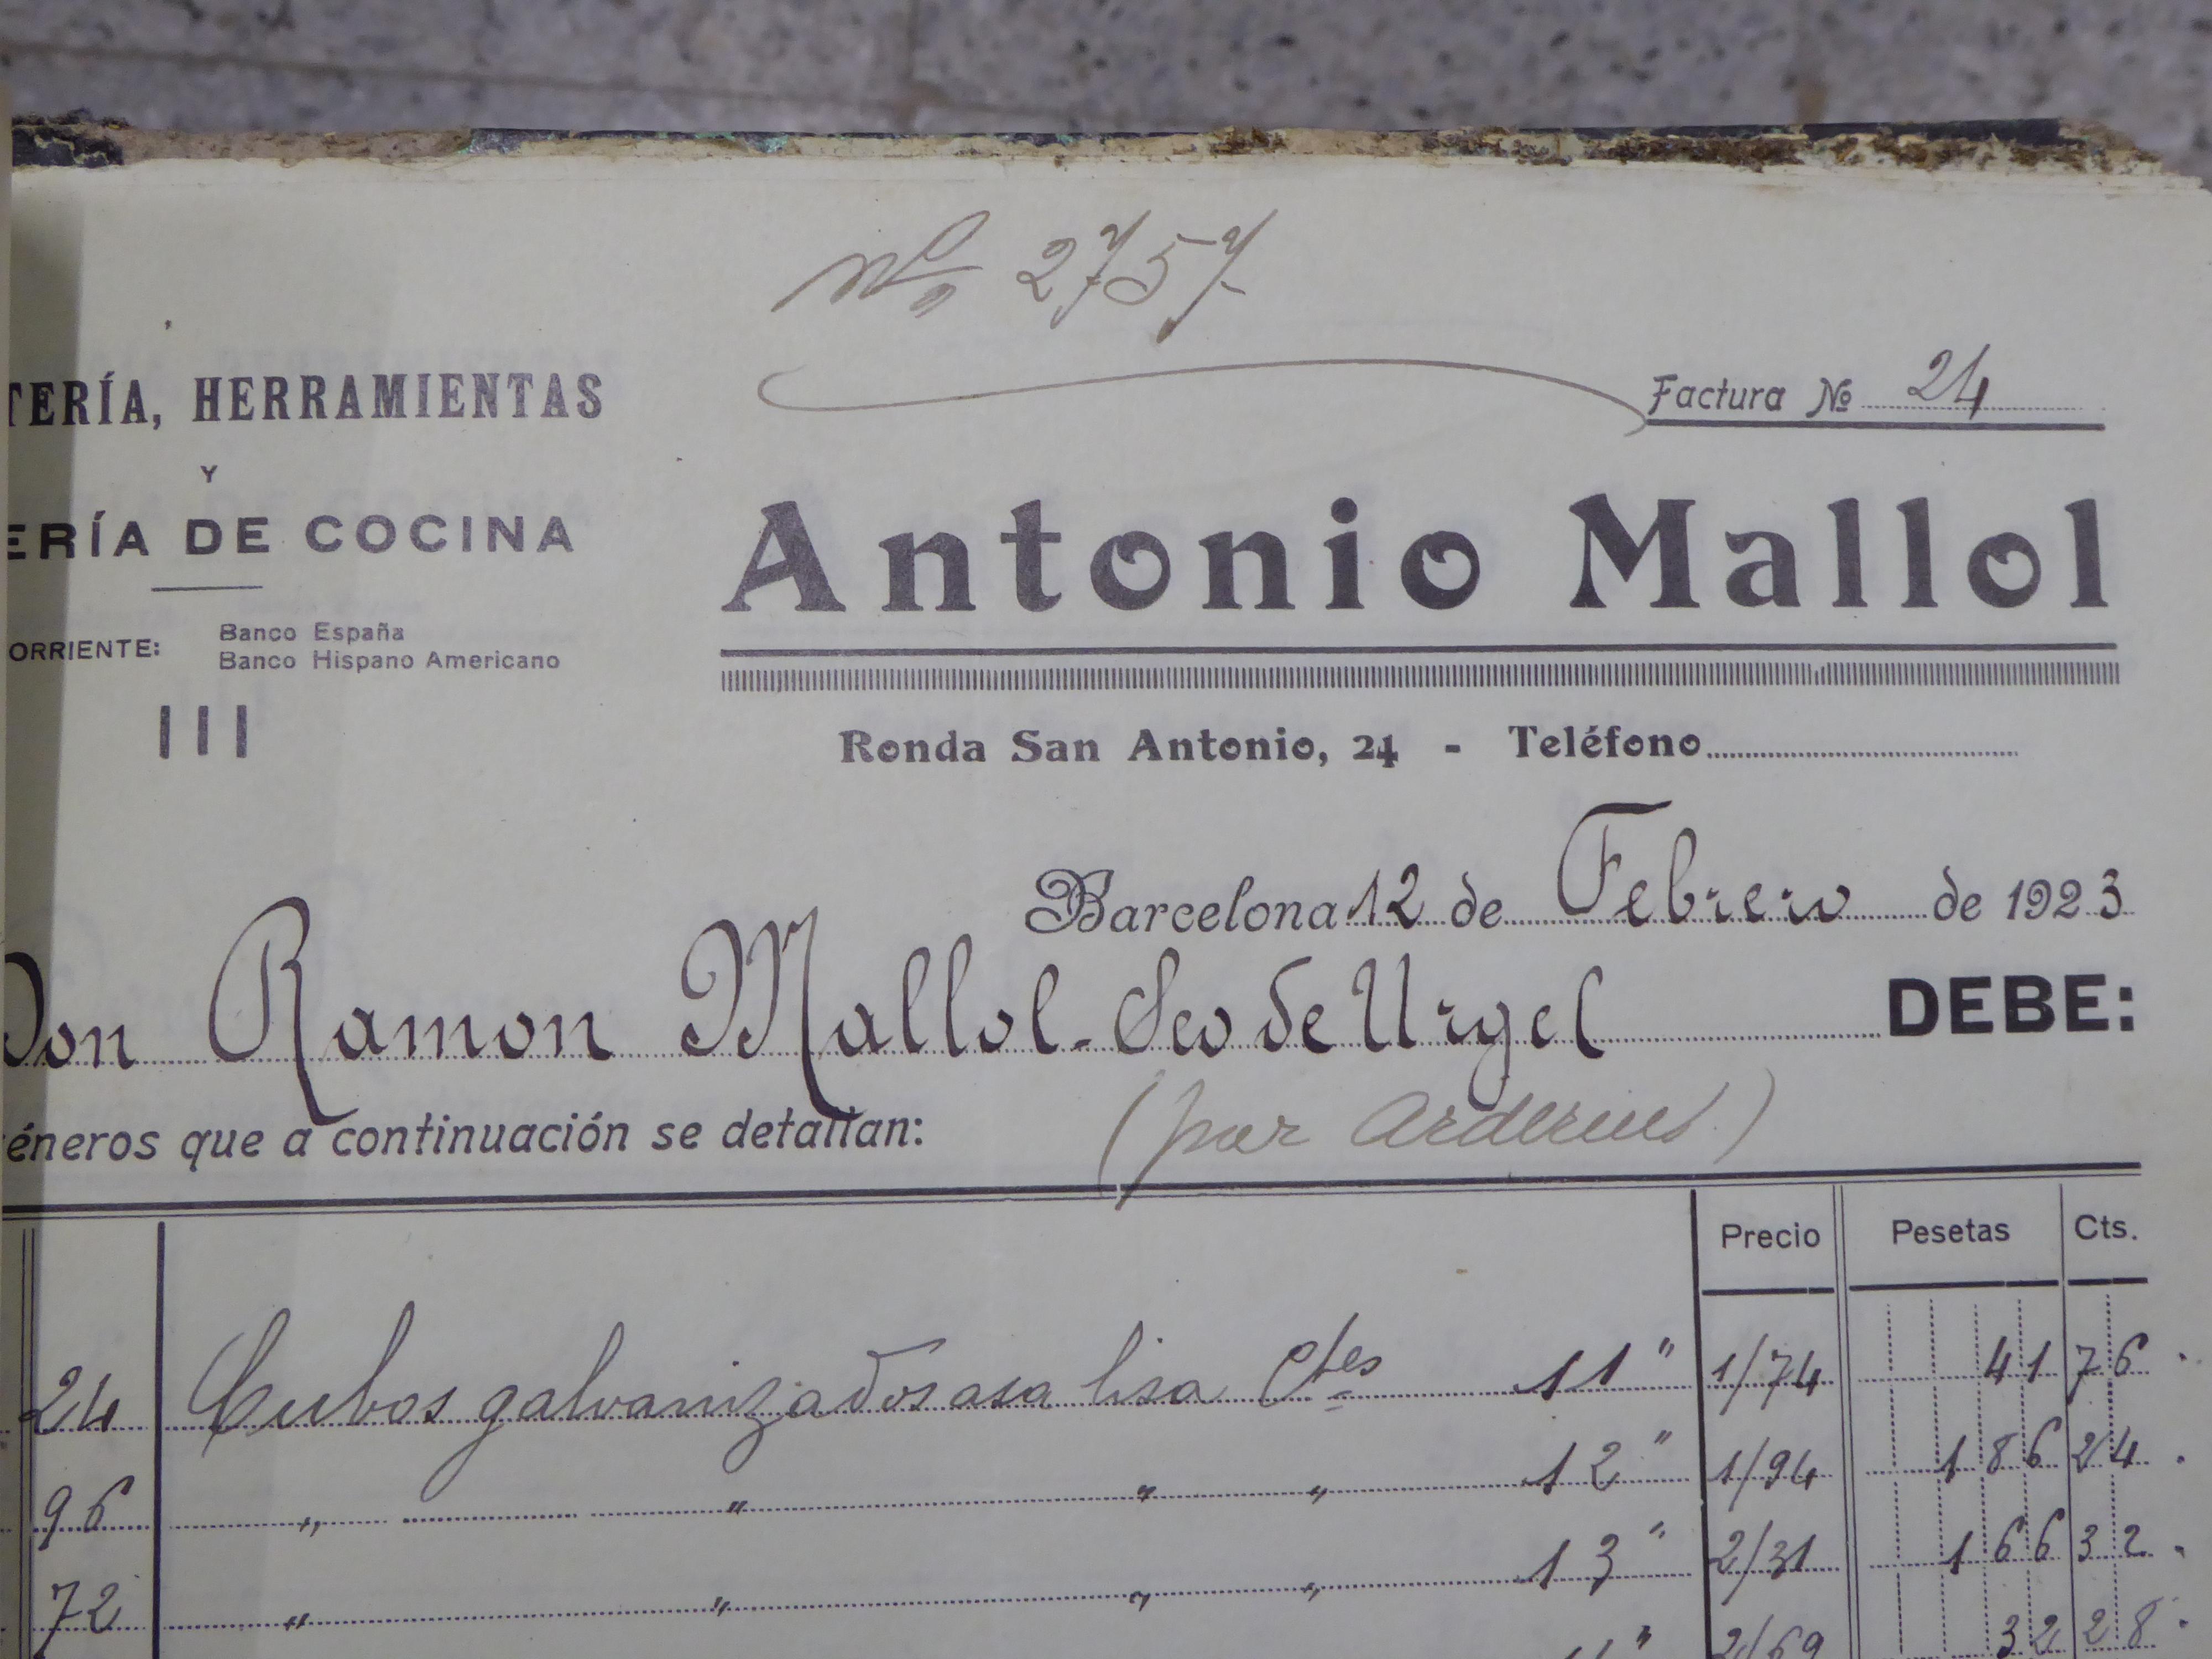 Nº 2757
Factura Nº 24
TERÍA, HERRAMIENTAS
Y
ERÍA DE COCINA
ORRIENTE: Banco España
Banco Hispano Americano
Antonio Mallol
Ronda San Antonio, 24 - Teléfono
Barcelona 12 de Febrero de 1923
Don Ramon Mallol - Seo de Urgel DEBE:
éneros que a continuación se detallan: (por Arderius)
Precio Pesetas Cts.
24 Cubos galvanizados asa lisa Ctes 11" 1/74 41 76
96 " " " " 12" 1/94 186 24
72 " " " " 13" 2/31 166 32
" 2/69 32 28